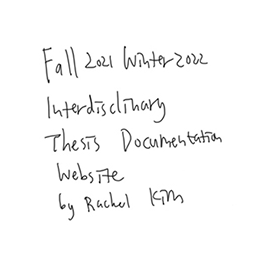 Fall 2021 Winter 2022
Interdisclinary
Thesis Documentation
Website
by Rachel Kim